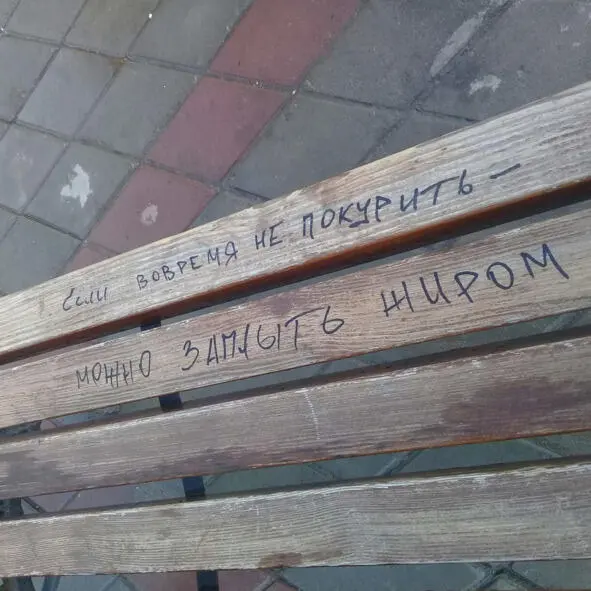 Если вовремя не покурить –
можно заплыть жиром